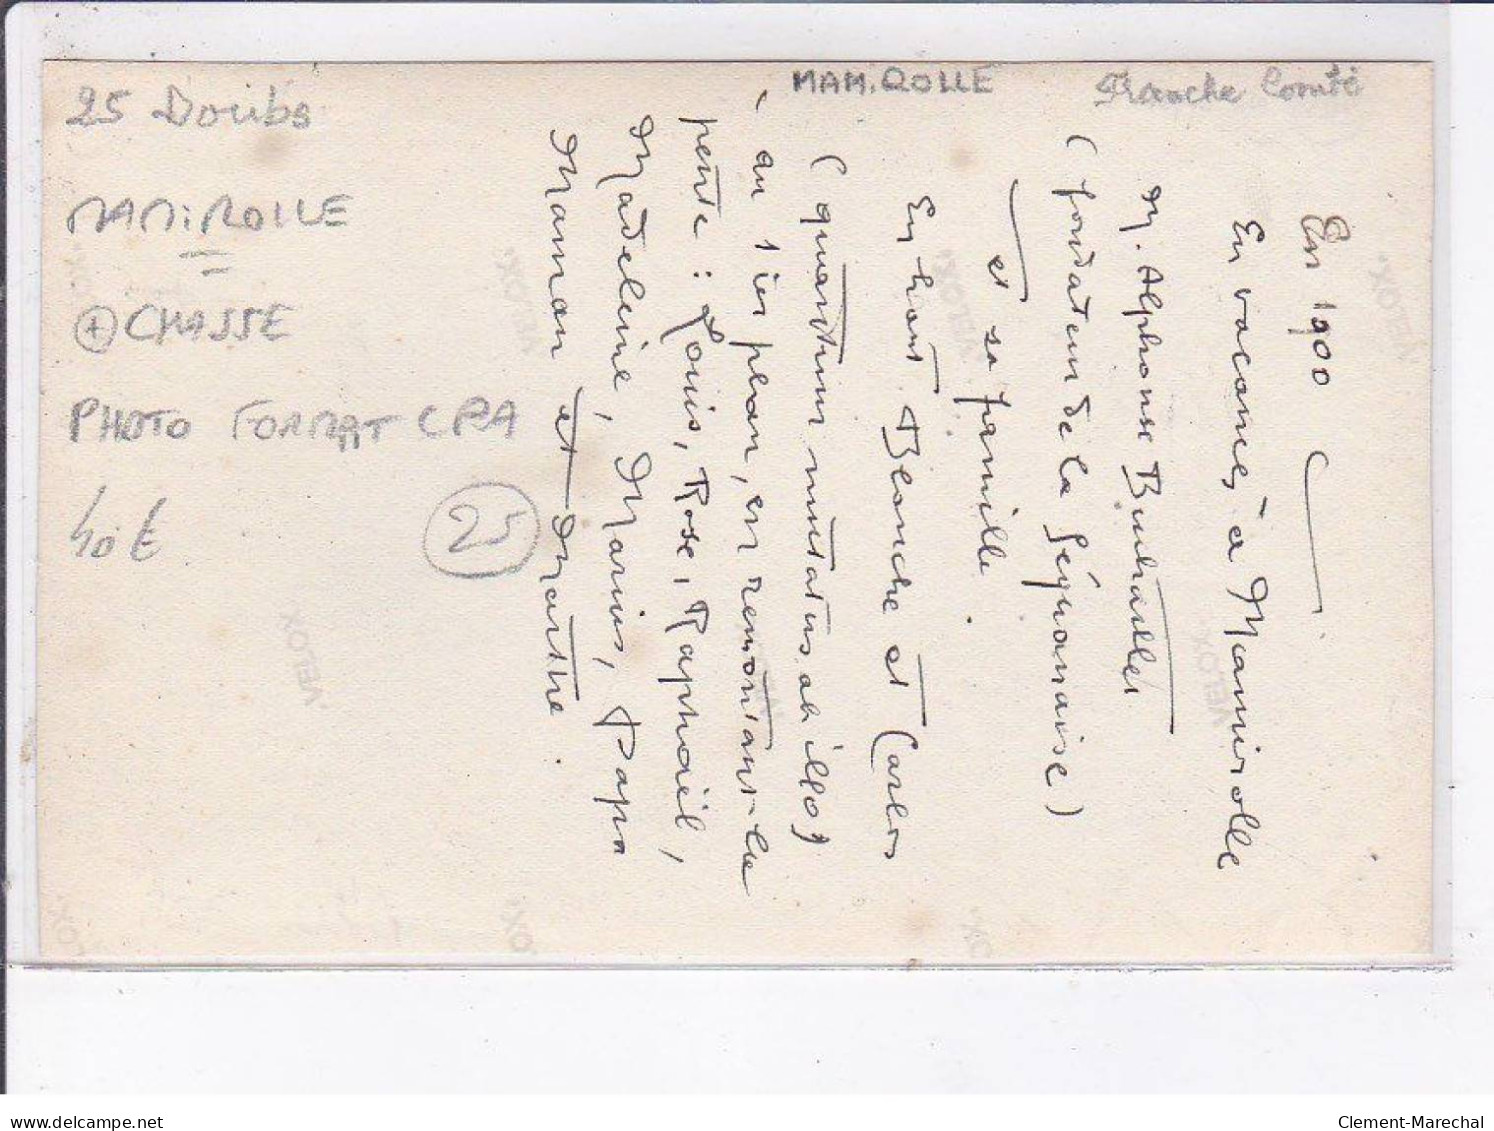 MAMIROLLE
Franche Comté
25 Doubs
MAMIROLLE
+ CHASSE
PHOTO FORMAT CPA
40 €
25
En 1900
En vacances à Mamirolle
M. Alphonse
(fondateur de la Séquanaise)
et sa famille.
En haut, Blanche et Carlos
(quantum mutatus ab illo)
au 1er plan, en remontant la
pente : Louis, Rose, Raphaël,
Madeleine, Marius, Papa
Maman et Marthe.
VELOX
VELOX
VELOX
VELOX
VELOX
VELOX
delcampe.net
Clement-Marechal